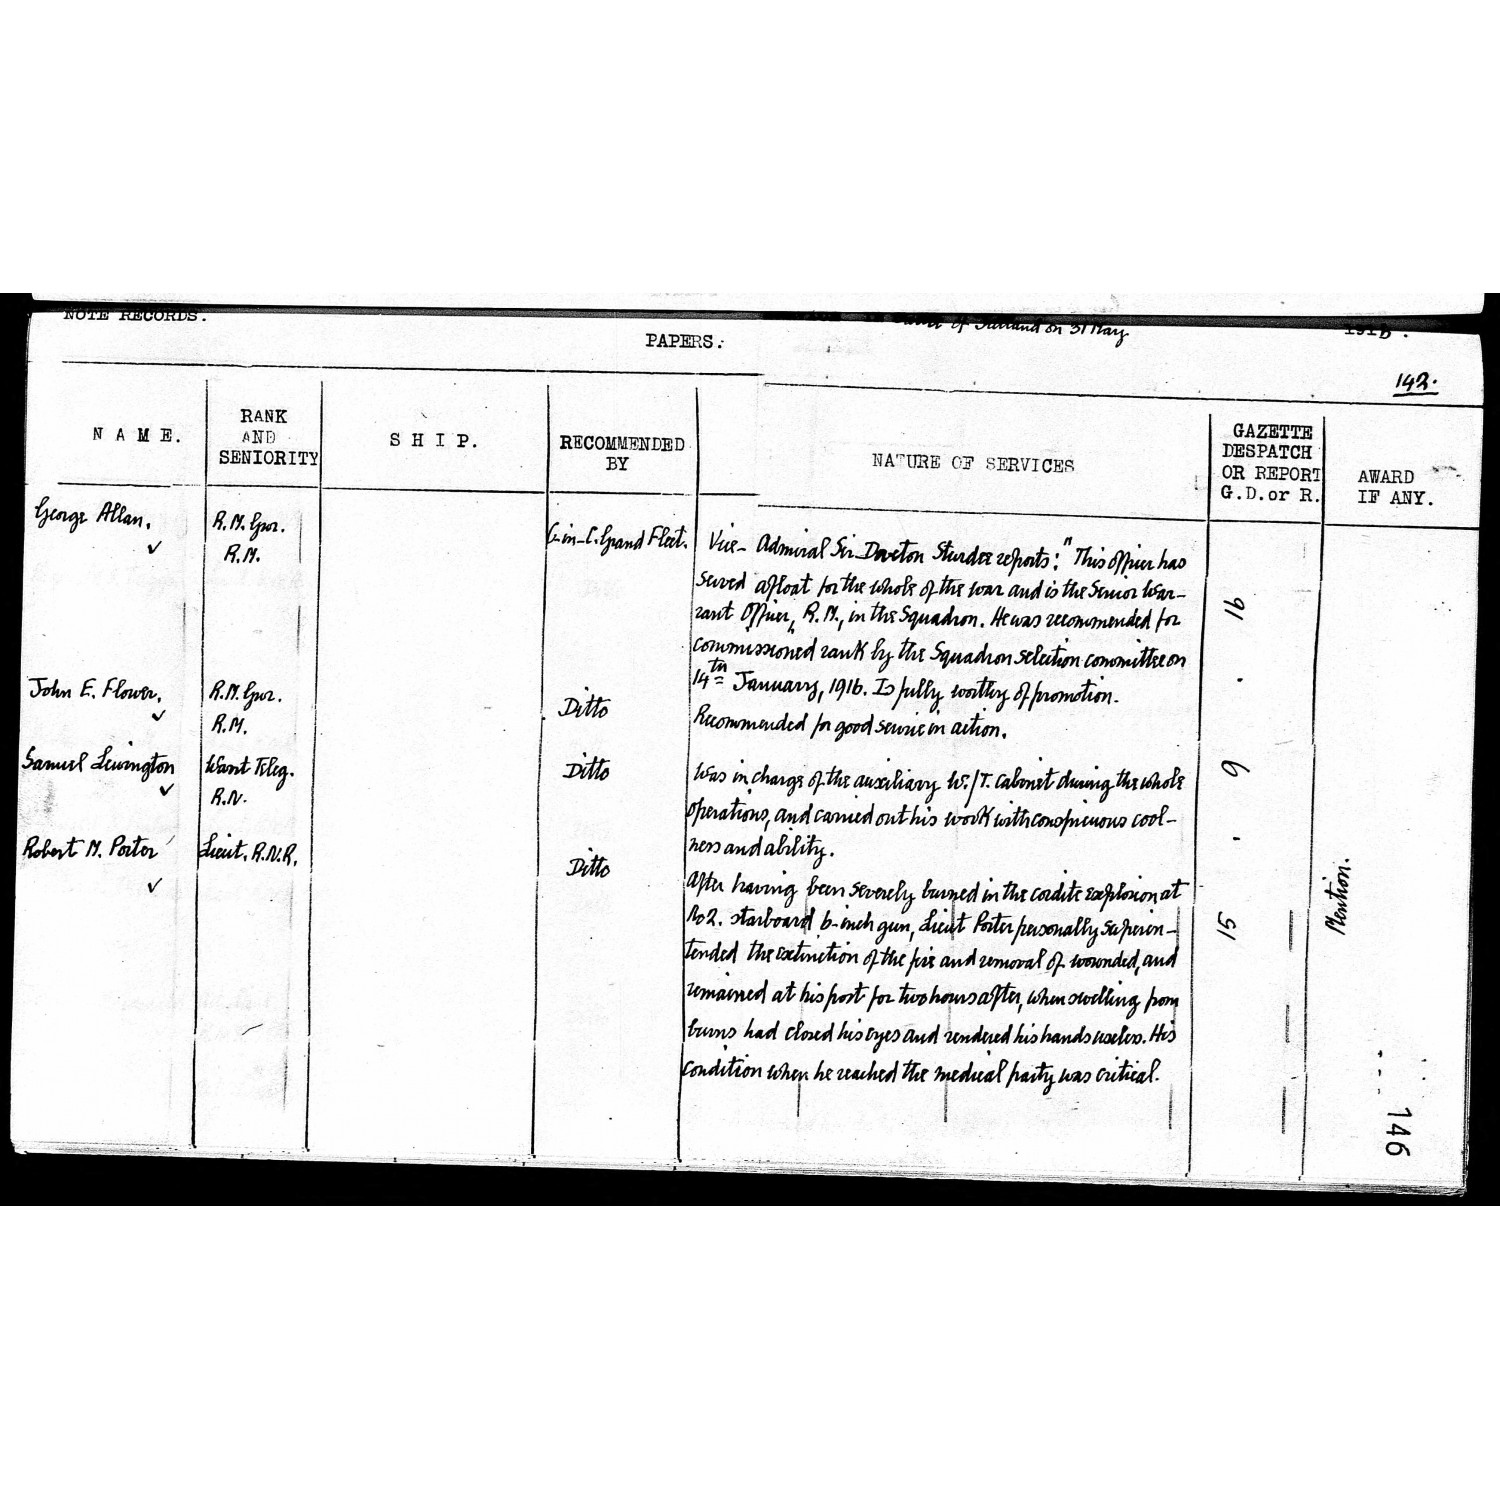 NOTE RECORDS.
of Jutland on 31 May 1916.
PAPERS.
142.
NAME.
RANK
AND
SENIORITY
SHIP.
RECOMMENDED
BY
NATURE OF SERVICES
GAZETTE
DESPATCH
OR REPORT
G.D.or R.
AWARD
IF ANY.
George Allan.
R.M. Gnr.
R.M.
C-in-C. Grand Fleet.
Vice-Admiral Sir Doveton Sturdee reports: "This officer has
served afloat for the whole of the war and is the Senior War-
rant Officer, R.M., in the Squadron. He was recommended for
commissioned rank by the Squadron selection committee on
14th January, 1916. Is fully worthy of promotion.
16
John E. Flower.
R.M. Gnr.
R.M.
Ditto
Recommended for good service in action.
Samuel Lewington
Warnt Teleg.
R.N.
Ditto
Was in charge of the auxiliary W./T. cabinet during the whole
operations, and carried out his work with conspicuous cool-
ness and ability.
Robert M. Porter
Lieut. R.N.R.
Ditto
After having been severely burned in the cordite explosion at
No 2. starboard 6-inch gun, Lieut Porter personally superin-
tended the extinction of the fire and removal of wounded, and
remained at his post for two hours after, when swelling from
burns had closed his eyes and rendered his hands useless. His
condition when he reached the medical party was critical.
15
Mention.
146